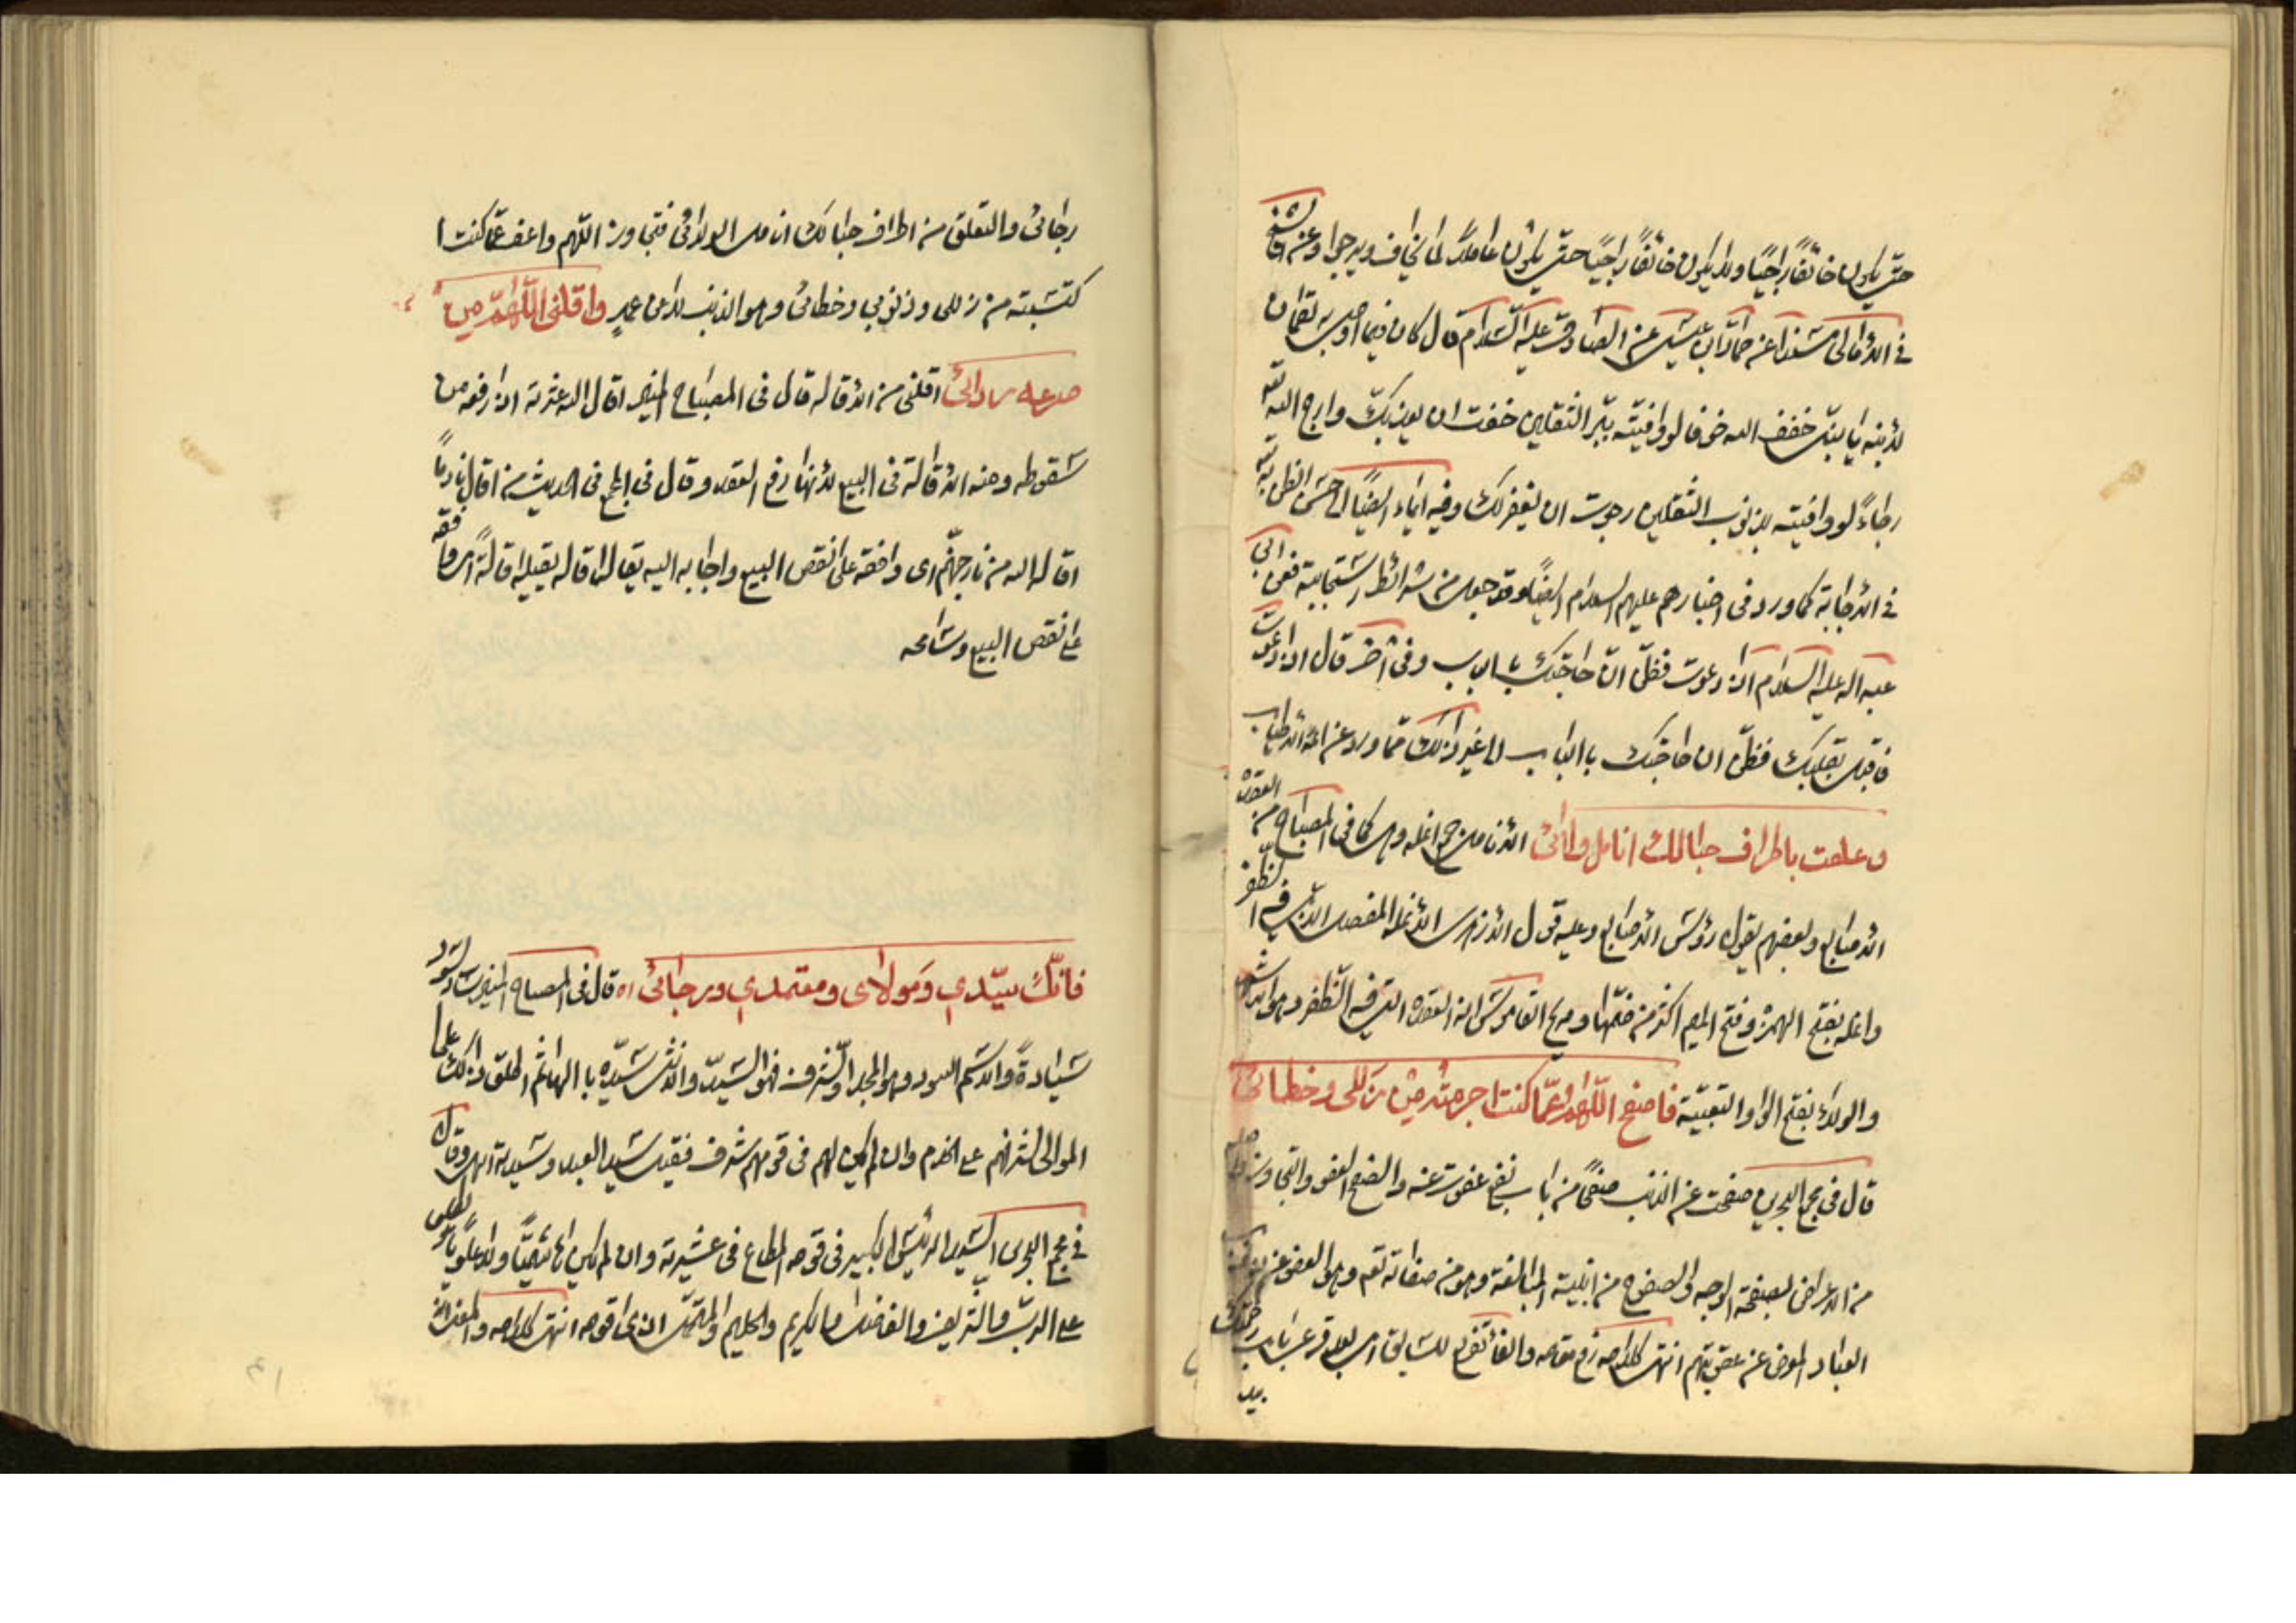 حتّى يكون خائفًا راجيًا ولا يكون خائفًا راجيًا حتّى يكون عاملًا لما يخاف ويرجوا وعنه
في الأمالى مسندا عن حماد بن عيسى عن الصادق عليه السّلام قال كان فيما اوصى به لقمان
لابنه يا بنىّ خف الله خوفا لو وافيته ببرّ الثقلين خفت ان يعذبك وارج الله
رجاءً لو وافيته بذنوب الثقلين رجوت ان يغفر لك وفيه ايماء ايضًا الى حسن الظن به
في الاجابة كما ورد فى اخبارهم عليهم السلام ايضًا وقد جعل من شرائط استجابته فعن ابى
عبد الله عليه السلام اذا دعوت فظنّ انّ حاجتك بالباب وفى آخر قال اذا دعوت
فاقبل بقلبك فظنّ ان حاجتك باالباب الى غير ذلك ممّا ورد عن ائمة الاطياب
وعلقت باطراف حبالك انامل ولائى الانامل جمع انمله وهى كما فى المصباح من العقدة
الاصابع وبعضهم يقول رؤس الاصابع وعليه قول الازهرى الانملة المفصل الذى فيه الظفر
وانمله بفتح الهمزة وفتح الميم اكثر من ضمّها وفى القاموس انه العقدة التى فيه الظفر وهو
والولاء بفتح الواو التبعيّة فاصفح اللّهم عمّا كنت اجرمته من زللى وخطائى
قال فى مجمع البحرين صفحت عن الذنب صفحًا من باب نفع عفوت عنه والصفح العفو والتجاوز
من الاعراض بصفحة الوجه والصفوح من ابنية المبالغة وهو من صفاته تعم وهو العفو عن ذنوب
العباد المعرض عن عقوبتهم انتهى كلامه رفع مقامه والفاء تفريع للسابق اى بعد قرعى باب رحمتك بيد
رجائى والتعلق من اطراف حبالك انامل الولائى فتجاوز اللّهم واعف عمّا كنت ا
كتسبته من زللى وذنوبي وخطائى وهو الذنب لا عن عمدٍ واقلنى اللّهمّ من
صرعه ردائى اقلنى من الاقاله قال فى المصباح المنير اقال الله عثرته اذا رفعه من
سقوطه ومنه الاقالة فى البيع لانها رفع العقد وقال فى المجمع فى الحديث من اقال نادمًا
اقاله الله من نار جهنّم اى وافقه على نقض البيع واجابه اليه يقال اقاله يقيله اقالةً اى وافقه
على نقض البيع وسامحه
فانّك سيّدي ومولاى ومعتمدي ورجائى اه قال فى المصباح المنير ساد يسود
سيادةً والاسم السودد وهو المجد والشرف فهو السيّد والانثى سيّدة باالهاء ثم اطلق ذلك على
الموالى لشرفهم على الخدم وان لم يكن لهم فى قومهم شرف فقيل سيد العبد وسيدته انتهى وقال
في مجمع البحرين السيد الرئيس الكبير فى قومه المطاع فى عشيرته وان لم يكن هاشميًّا ولا علويًّا
على الربّ والشريف والفاضل والكريم والحليم والمتحمّل اذى قومه انتهى كلامه